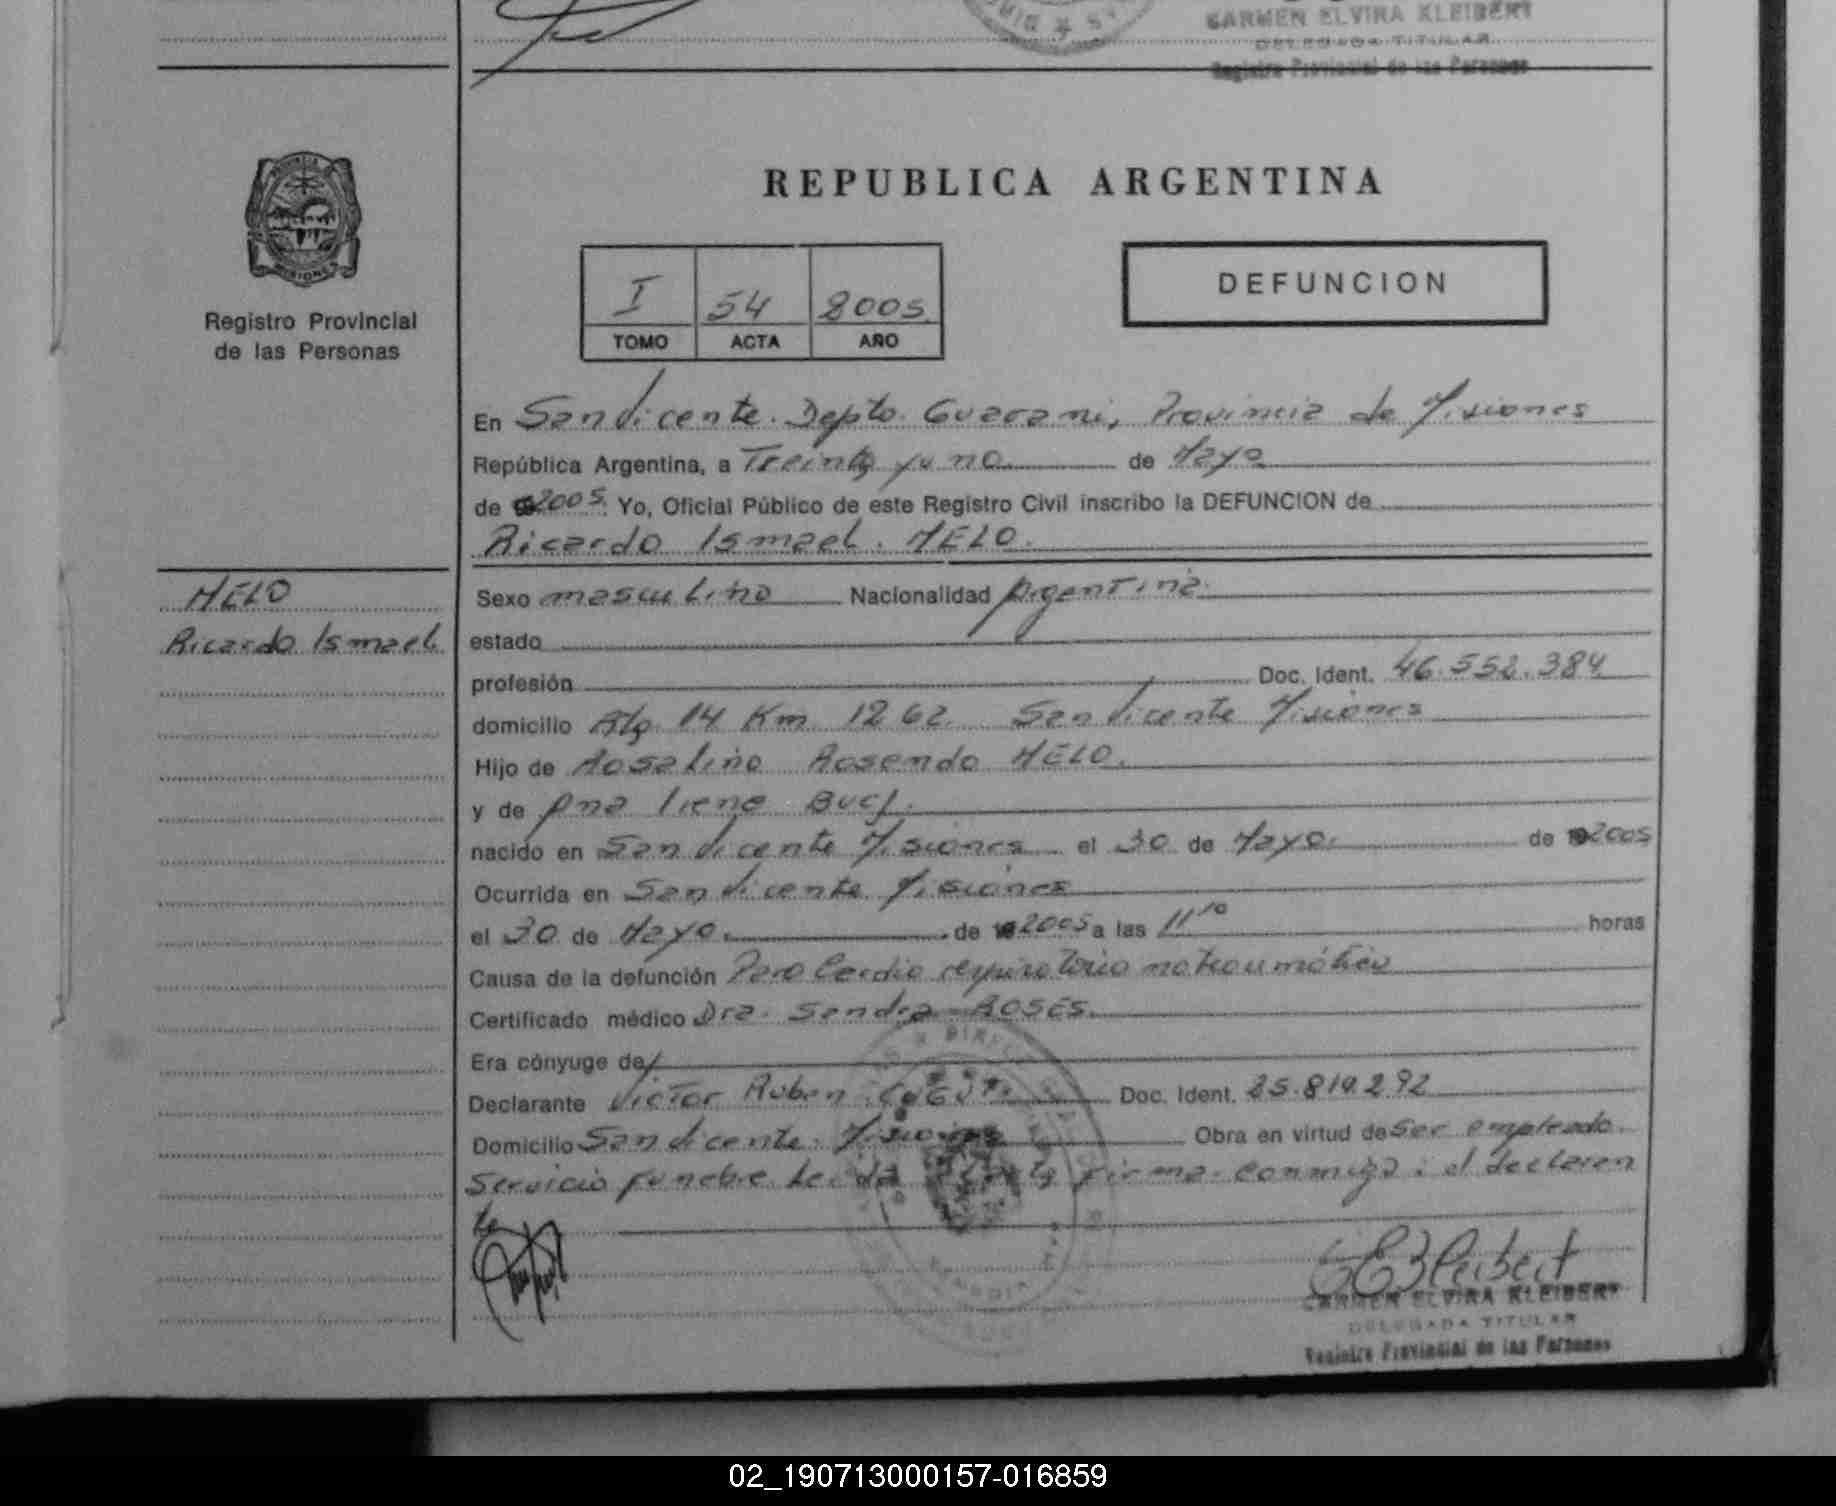 CARMEN ELVIRA KLEIBERT
DELEGADA TITULAR
Registro Provincial de las Personas
PROVINCIA
MISIONES
Registro Provincial
de las Personas
REPUBLICA ARGENTINA
I 54 2005
TOMO ACTA AÑO
DEFUNCION
En San Vicente. Depto. Guarani, Provincia de Misiones
República Argentina, a Treinta y uno de Mayo
de 2005. Yo, Oficial Público de este Registro Civil inscribo la DEFUNCION de
Ricardo Ismael. MELO.
MELO
Ricardo Ismael
Sexo masculino Nacionalidad Argentina
estado
profesión Doc. Ident. 46.552.384
domicilio Rta 14 Km 1262. San Vicente Misiones
Hijo de Rosalino Rosendo MELO.
y de Ana Irene
nacido en San Vicente Misiones el 30 de Mayo. de 2005
Ocurrida en San Vicente Misiones
el 30 de Mayo. de 2005 a las 11 10 horas
Causa de la defunción Paro Cardio respiratorio no traumático
Certificado médico Dra. Sandra BOSES.
Era cónyuge de
Declarante Victor Ruben Doc. Ident. 25.819.292
Domicilio San Vicente. Misiones Obra en virtud de Ser empleado
Servicio funebre Leida firma conmigo: el declaran
te
CARMEN ELVIRA KLEIBERT
DELEGADA TITULAR
Registro Provincial de las Personas
02_190713000157-016859